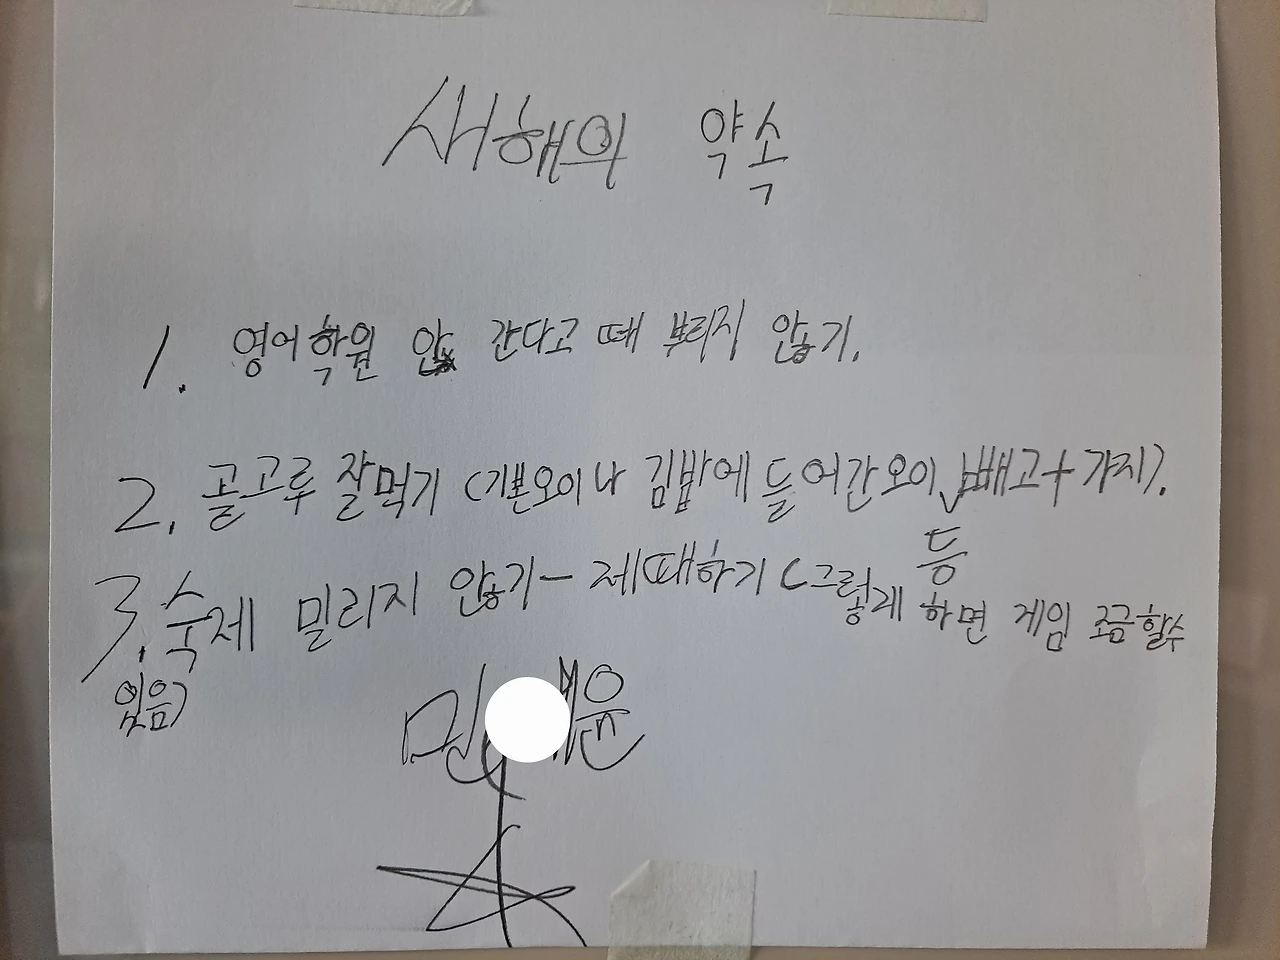 새해의 약속
1. 영어학원 안 간다고 떼 부리지 않기.
2. 골고루 잘먹기 (기본오이나 김밥에 들어간오이 등 빼고+가지).
3. 숙제 밀리지 않기-제때하기 (그렇게 하면 게임 조금할수
있음)
민 윤